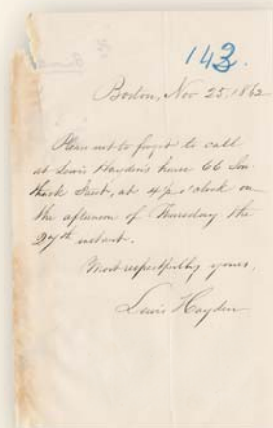 143.
Boston, Nov 25, 1862
Please not to forget to call
at Lewis Hayden's house 66 Sou
thack Street, at 4½ o'clock on
the afternoon of Thursday the
27th instant.
Most respectfully yours,
Lewis Hayden